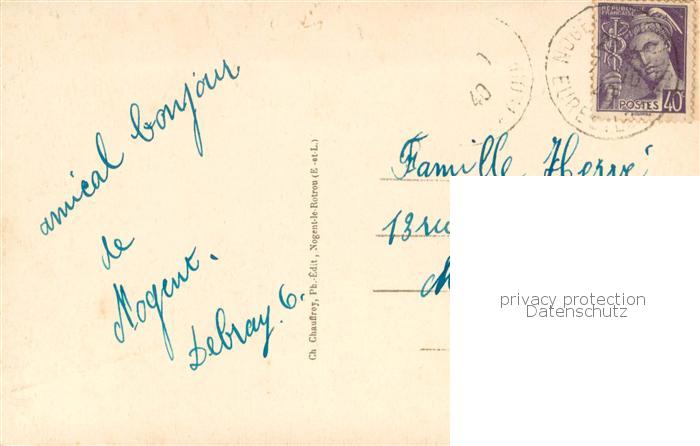 amical bonjour
de
Nogent.
Debray. G.
Ch Chauffroy, Ph.-Édit, Nogent-le-Rotrou (E.-et-L.)
40
NOGE
EURE
RÉPUBLIQUE
FRANÇAISE
POSTES 40
Famille Hervé
13 ru
privacy protection
Datenschutz